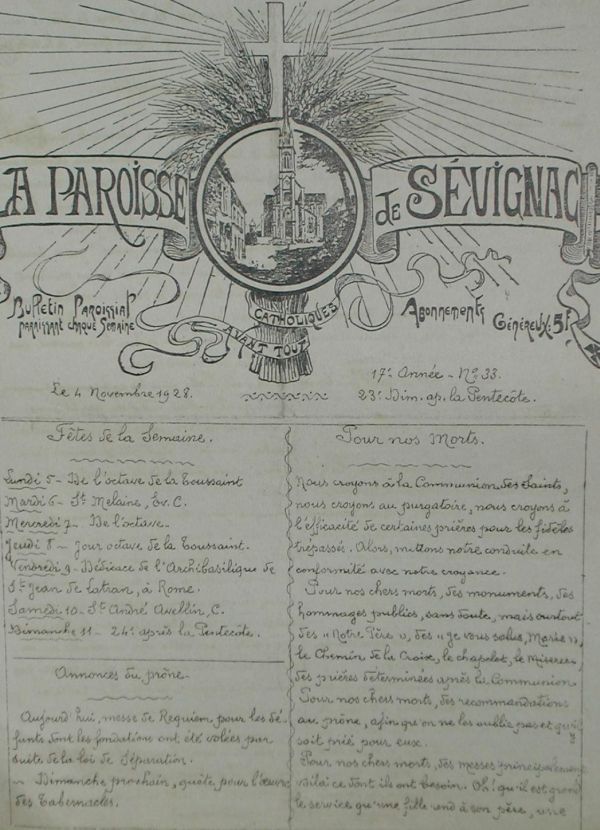 LA PAROISSE DE SÉVIGNAC
Bulletin Paroissial
paraissant chaque Semaine
CATHOLIQUES
AVANT TOUT
Abonnements
Généreux: 5F
Le 4 Novembre 1928.
17e Année - No 33.
23e Dim. ap. la Pentecôte.
Fêtes de la Semaine.
Lundi 5 - De l'octave de la Toussaint
Mardi 6 - St Melaine, Ev. C.
Mercredi 7 - De l'octave.
Jeudi 8 - Jour octave de la Toussaint.
Vendredi 9 - Dédicace de l'Archibasilique de
St Jean de Latran, à Rome.
Samedi 10 - St André Avellin, C.
Dimanche 11 - 24e après la Pentecôte.
Annonces du prône.
Aujourd'hui, messe de Requiem pour les dé-
funts dont les fondations ont été volées par
suite de la loi de Séparation.
- Dimanche prochain, quête pour l'œuvre
des Tabernacles.
Pour nos Morts.
Nous croyons à la Communion des Saints,
nous croyons au purgatoire, nous croyons à
l'efficacité de certaines prières pour les fidèles
trépassés. Alors, mettons notre conduite en
conformité avec notre croyance.
Pour nos chers morts, des monuments, des
hommages publics, sans doute, mais surtout
des « Notre Père », des « Je vous salue, Marie »,
le Chemin de la Croix, le chapelet, le Miserere,
des prières déterminées après la Communion
Pour nos chers morts, des recommandations
au prône, afin que on ne les oublie pas et qu'il
soit prié pour eux.
Pour nos chers morts, des messes principalement
voilà ce dont ils ont besoin. Oh! qu'il est grand
le service qu'une fille rend à son père, une